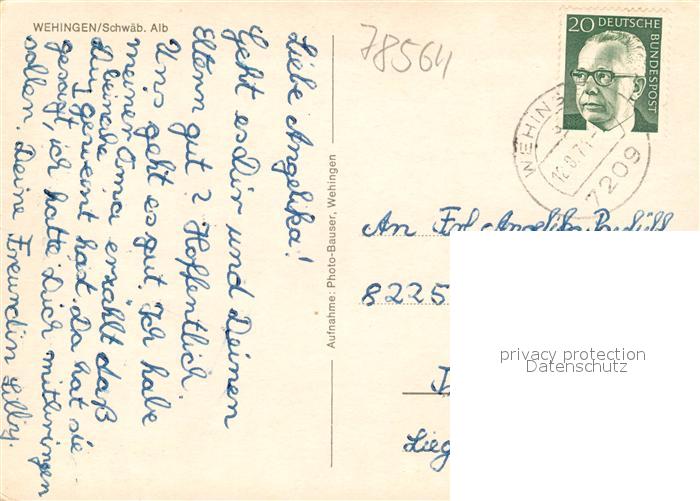 WEHINGEN/Schwäb. Alb
Liebe Angelika!
Geht es Dir und Deinen
Eltern gut? Hoffentlich.
Uns geht es gut. Ich habe
meiner Oma erzählt daß
Du beinahe
geweint hast. Da hat sie
gesagt, ich hätte Dich mitbringen
sollen. Deine Freundin Lilly.
Aufnahme: Photo-Bauser, Wehingen
78564
20 DEUTSCHE
BUNDESPOST
7209
An Frl. Angelika
8225
privacy protection
Datenschutz